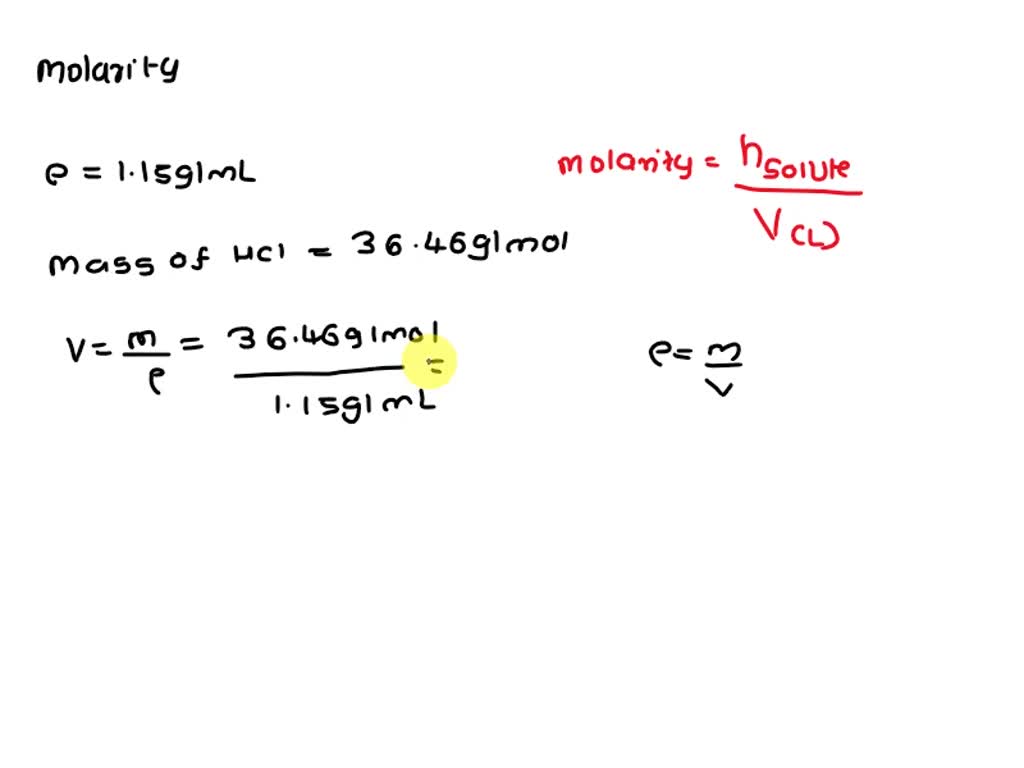 molarity
ρ = 1.15g/mL
molarity = n solute / V(L)
mass of HCl = 36.46g/mol
V = m/ρ = 36.46g/mol / 1.15g/mL =
ρ = m/V